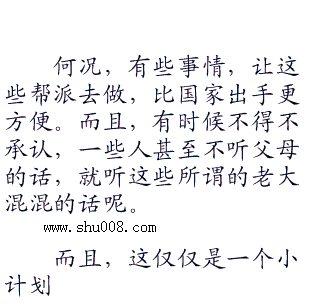 何况，有些事情，让这
些帮派去做，比国家出手更
方便。而且，有时候不得不
承认，一些人甚至不听父母
的话，就听这些所谓的老大
混混的话呢。
www.shu008.com
而且，这仅仅是一个小
计划